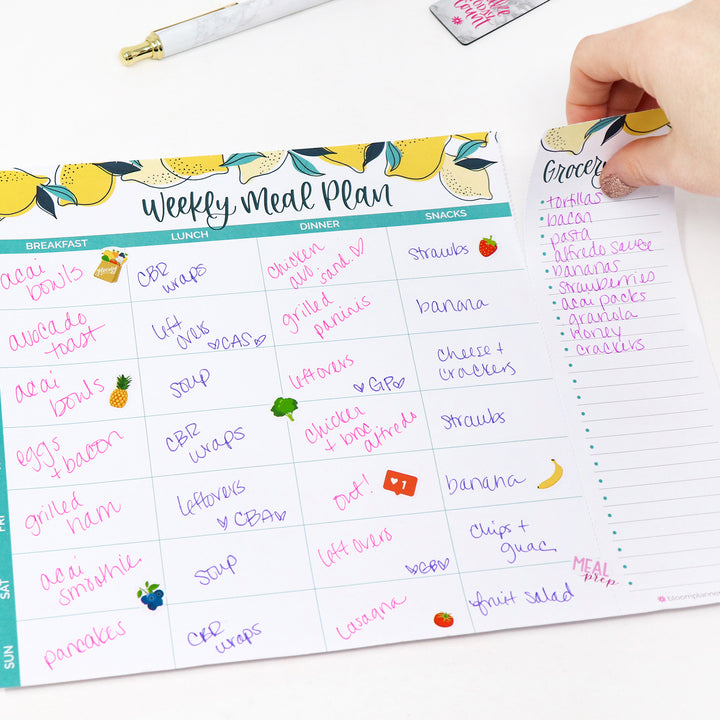 count
Weekly Meal Plan
BREAKFAST
LUNCH
DINNER
SNACKS
acai
bowls
CBR
wraps
chicken
avo sand.♡
strawbs
avocado
toast
left
overs
♡CAS♡
grilled
paninis
banana
acai
bowls
soup
leftovers
♡GP♡
cheese +
crackers
eggs
+ bacon
CBR
wraps
chicken
+ broc
alfredo
strawbs
FRI
grilled
ham
leftovers
♡CBA♡
out!
1
banana
SAT
acai
smoothie
soup
leftovers
chips +
guac
SUN
pancakes
CBR
wraps
lasagna
fruit salad
Grocery
tortillas
bacon
pasta
alfredo sauce
bananas
strawberries
acai packs
granola
honey
crackers
MEAL
prep
bloomplanne